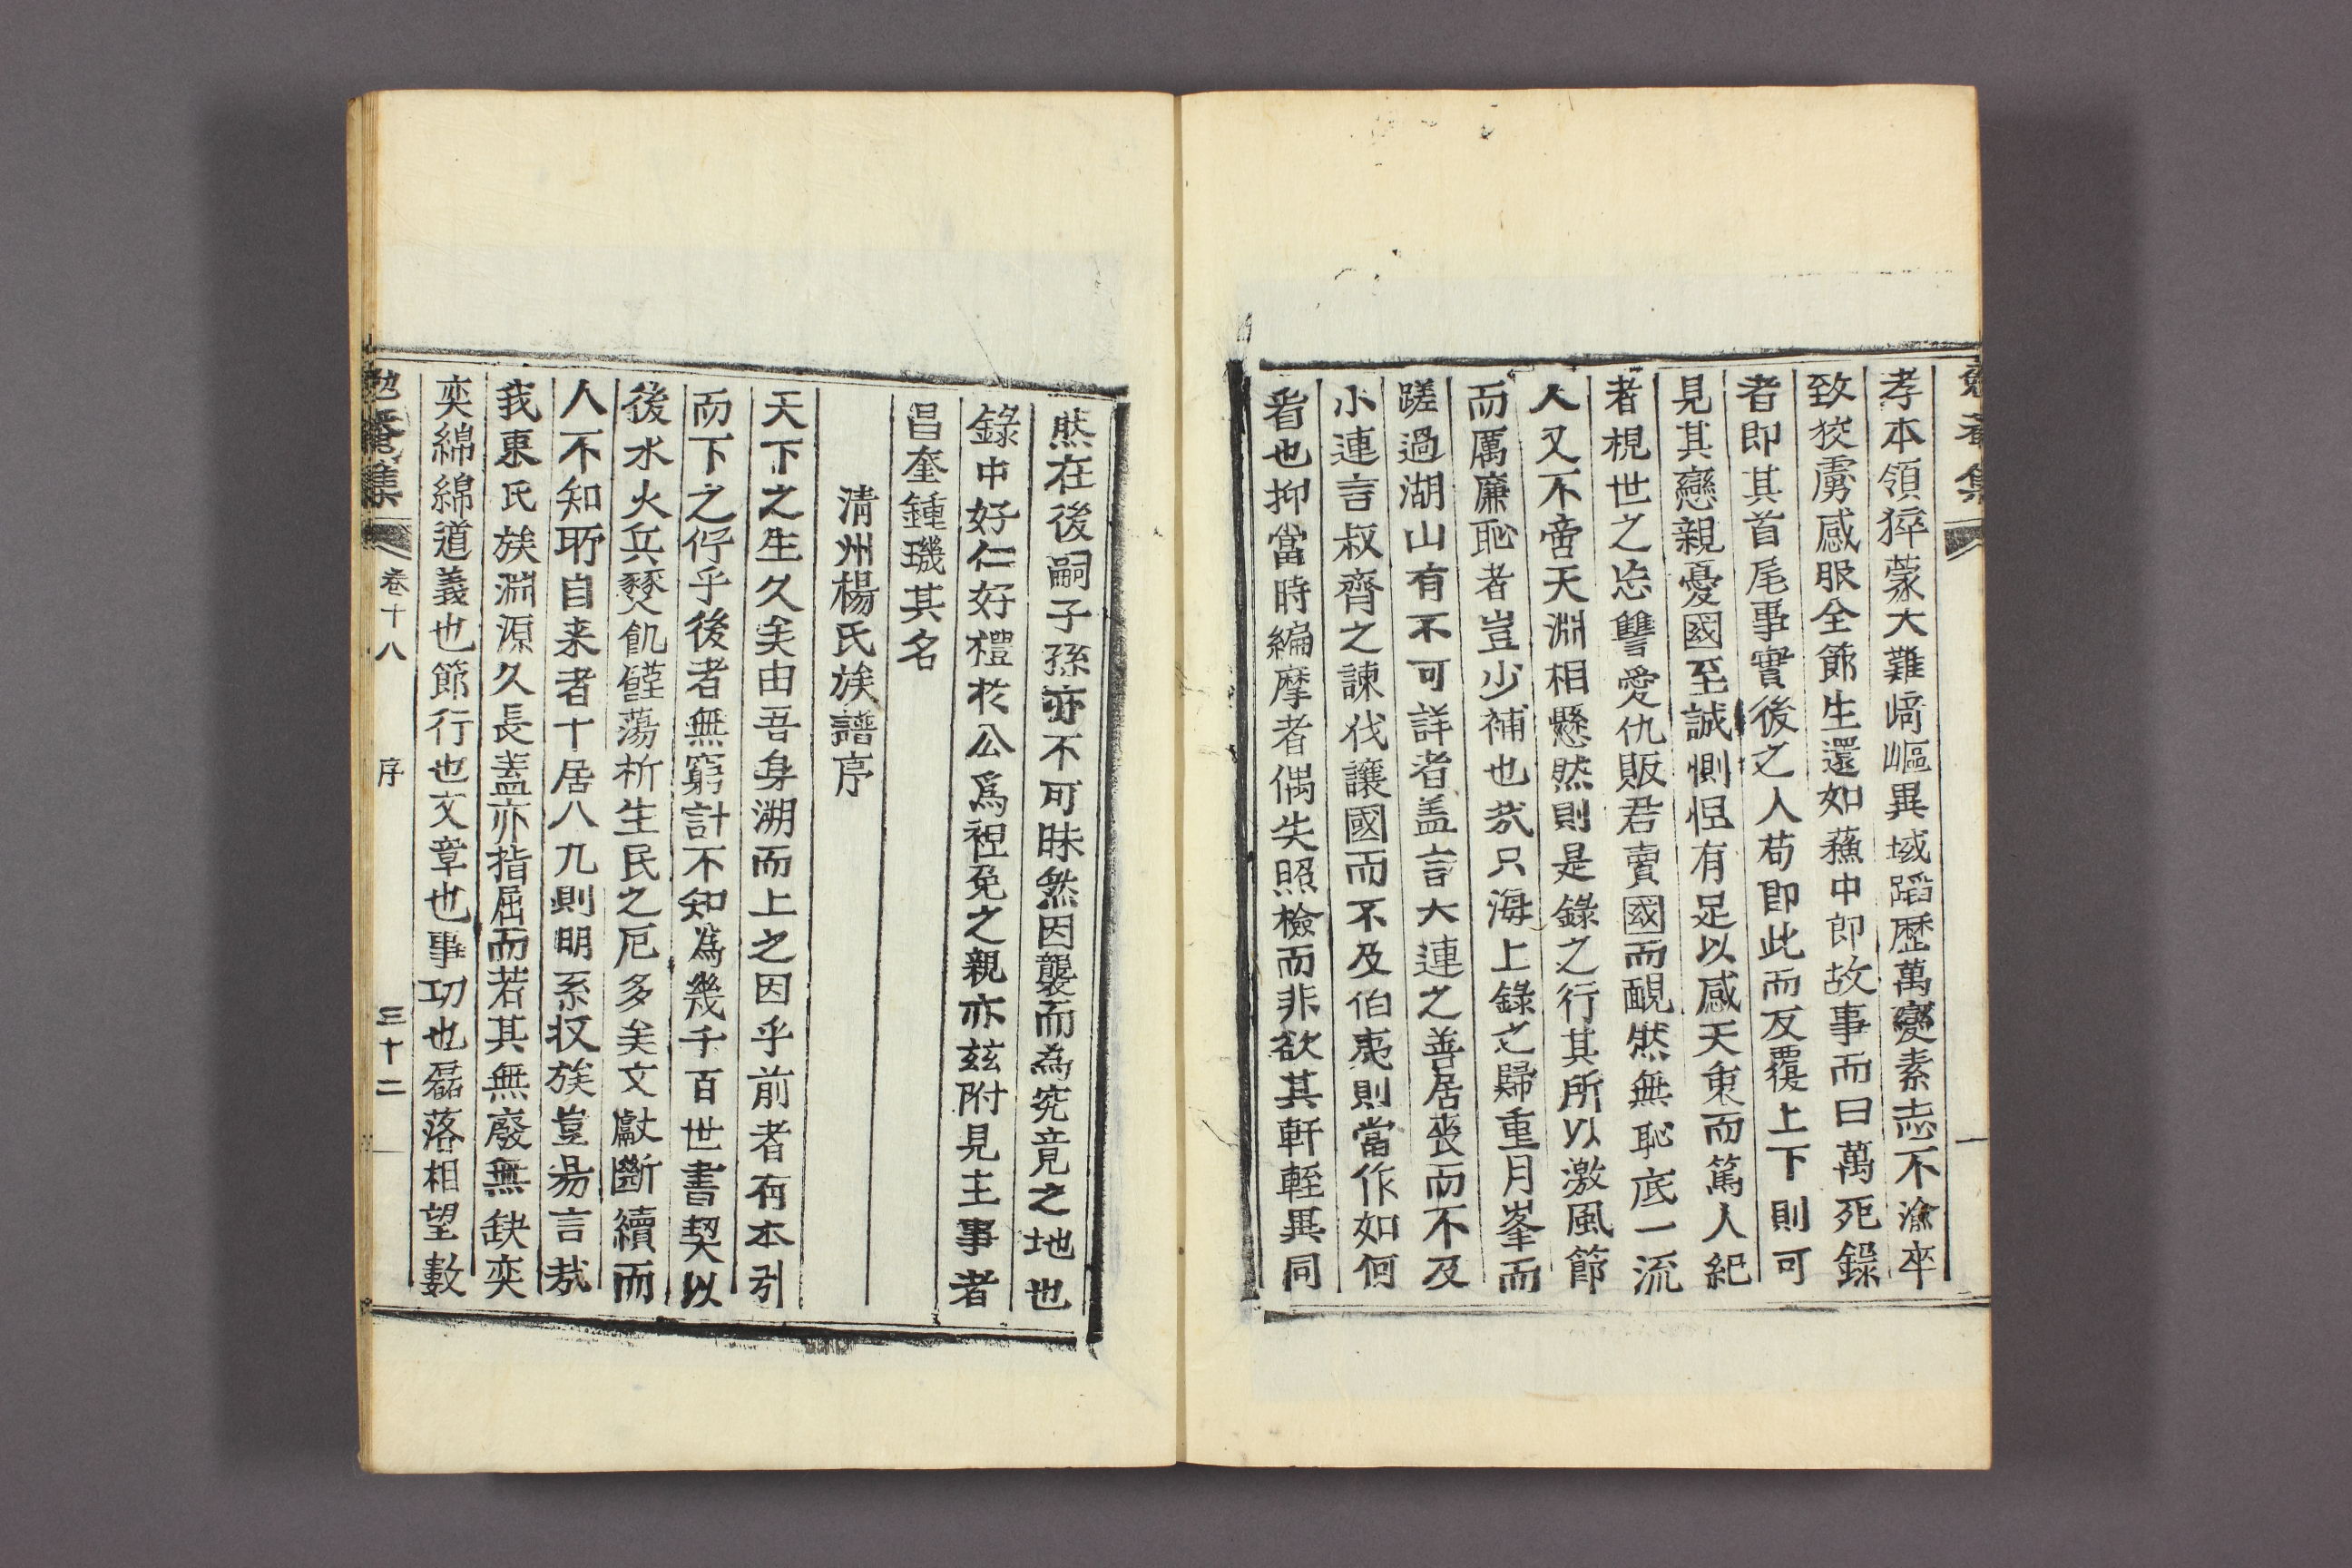 孝本領猝蒙大難﨑嶇異域蹈歷萬變素志不渝卒
致狡虜感服全節生還如蘓中郎故事而曰萬死錄
者即其首尾事實後之人苟即此而反覆上下則可
見其戀親憂國至誠惻怛有足以感天衷而篤人紀
者視世之忘讐愛仇販君賣國而靦然無恥底一流
人又不啻天淵相懸然則是錄之行其所以激風節
而厲廉恥者豈少補也㢤只海上錄之歸重月峯而
蹉過湖山有不可詳者盖言大連之善居喪而不及
小連言叔齊之諫伐讓國而不及伯夷則當作如何
看也抑當時編摩者偶失照檢而非欲其軒輊異同
然在後嗣子孫亦不可昧然因襲而為究竟之地也
錄中好仁好禮於公爲袒免之親亦兹附見主事者
昌奎鍾璣其名
淸州楊氏族譜序
天下之生久矣由吾身溯而上之因乎前者有本引
而下之俘乎後者無窮計不知為幾千百世書契以
後水火兵燹飢饉蕩析生民之厄多矣文獻斷續而
人不知所自来者十居八九則明系収族豈易言㢤
我東氏族淵源久長盖亦指屈而若其無廢無缺奕
奕綿綿道義也節行也文章也事功也磊落相望數
勉菴集
卷十八
序
三十二